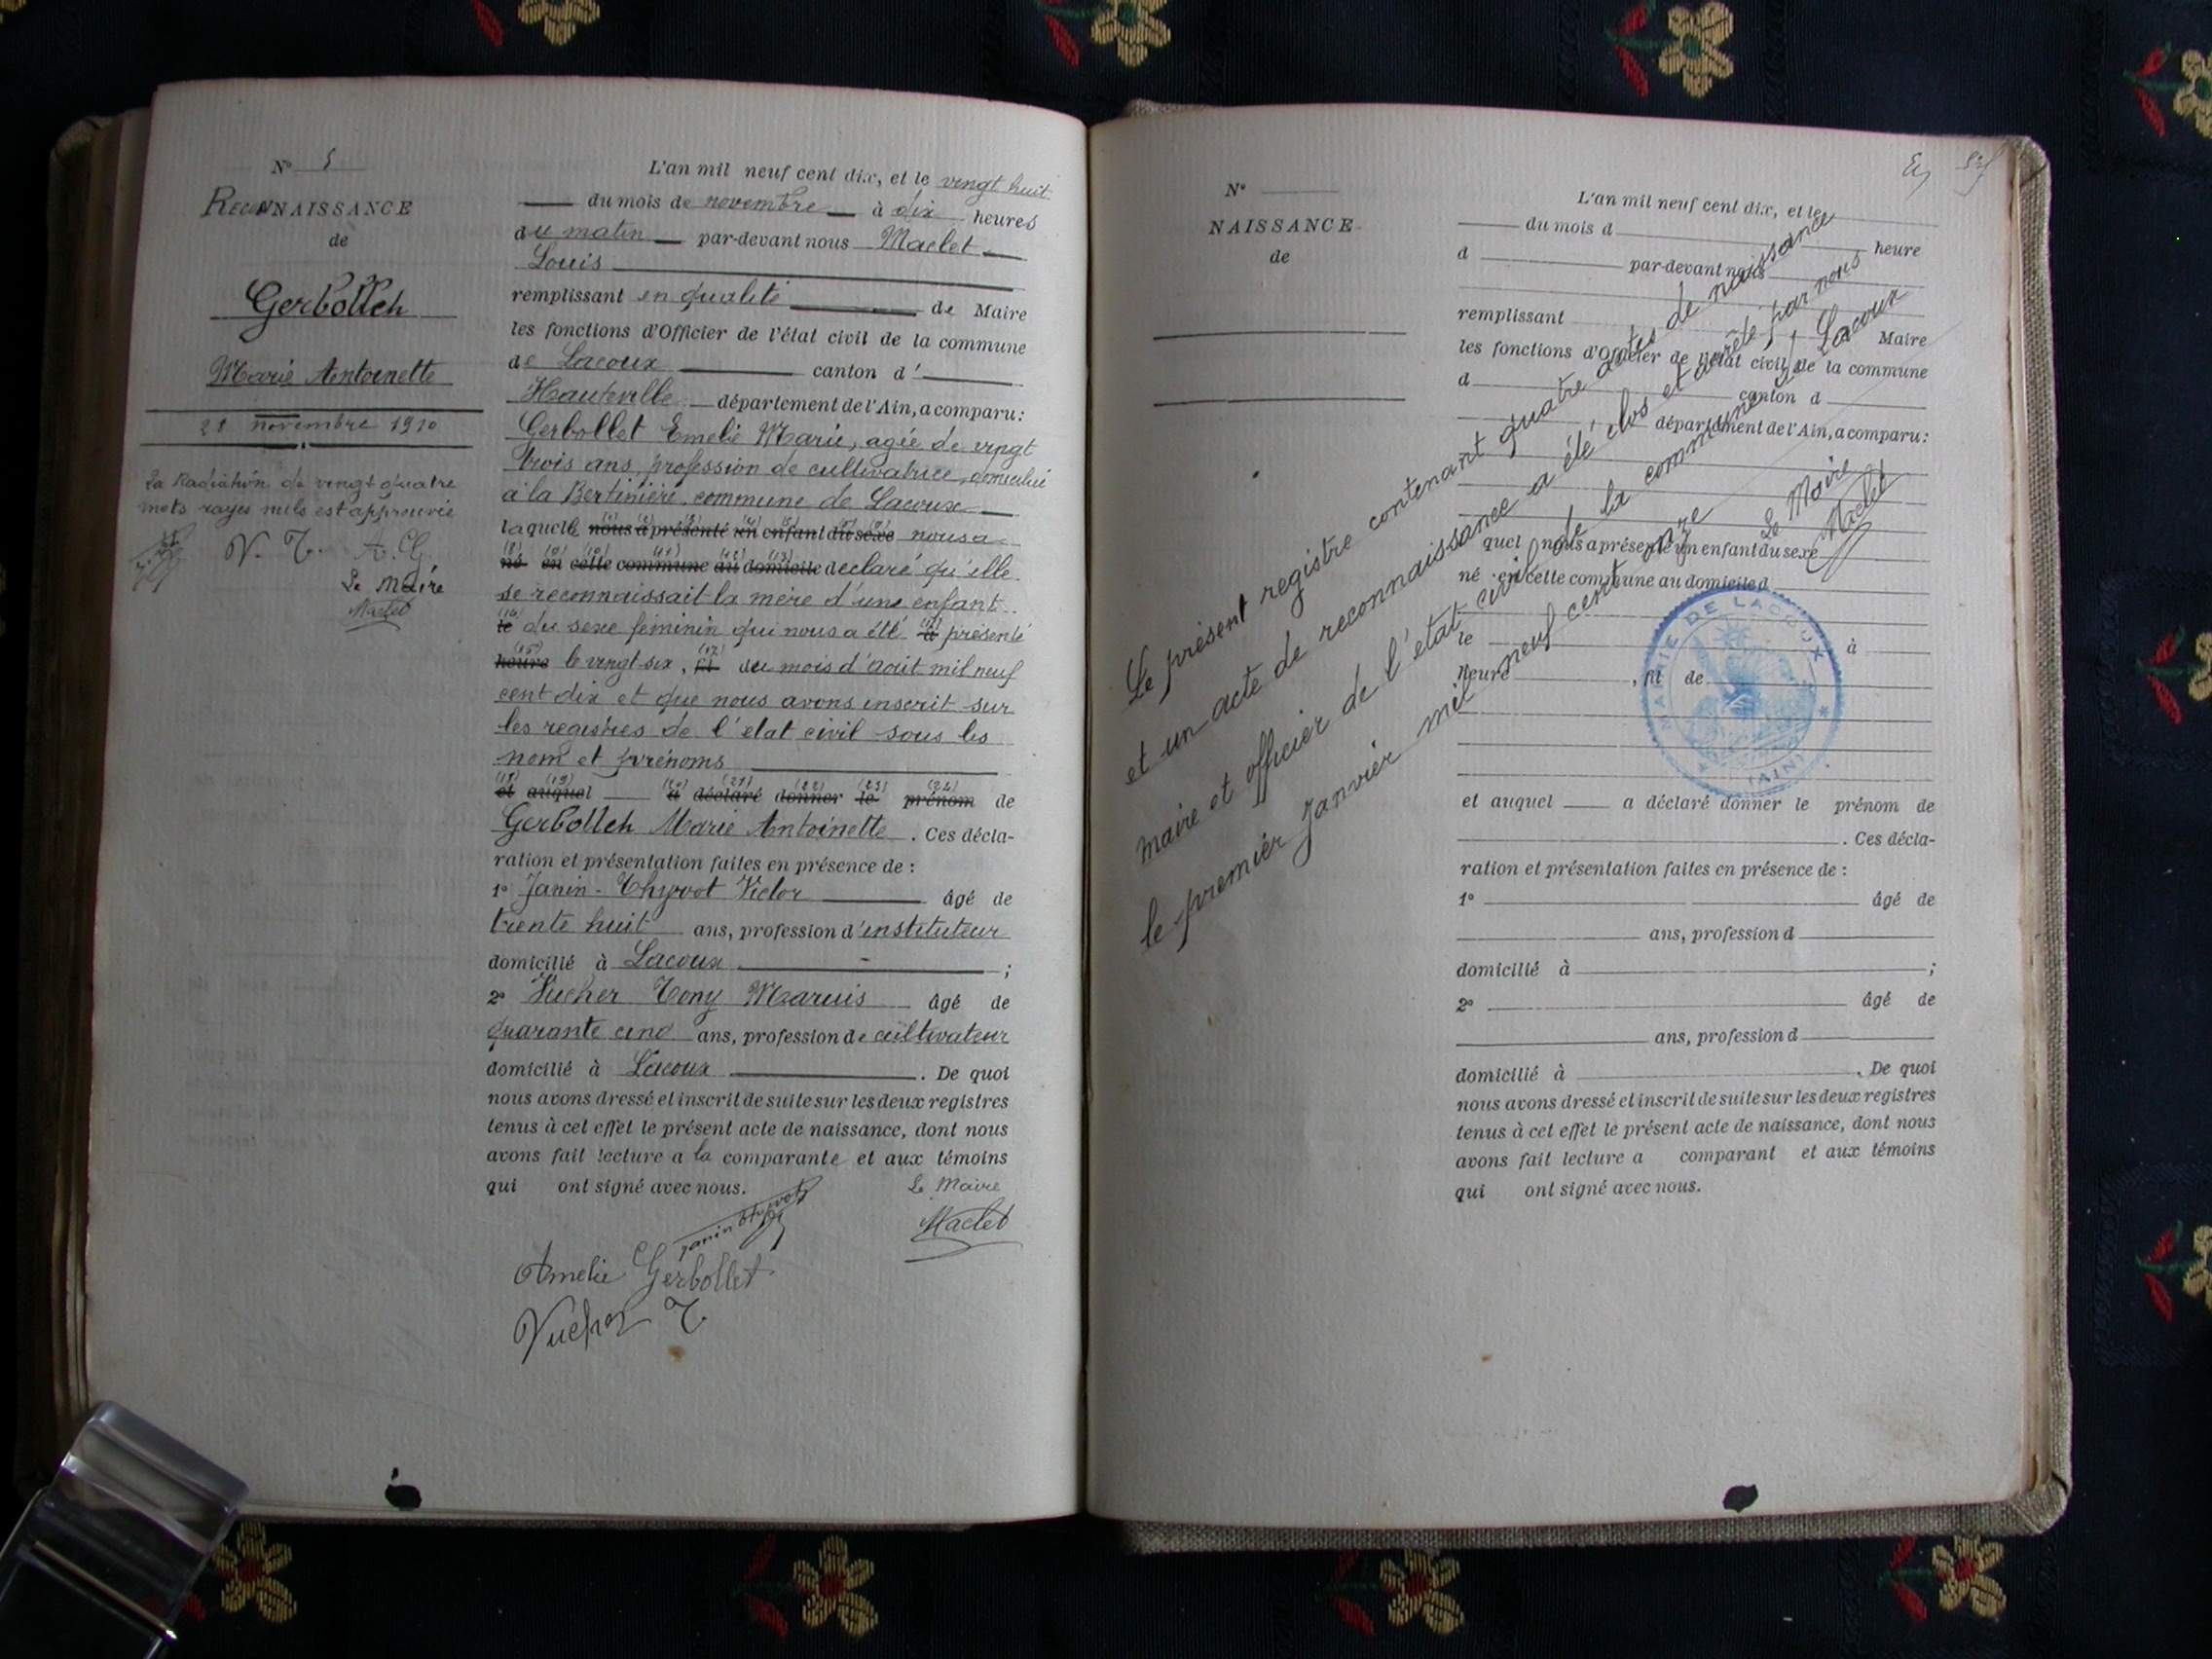 N° 5
RECONNAISSANCE
de
Gerbolleh
Marie Antoinette
28 novembre 1910
La Radiation de vingt quatre
mots rayés nuls est approuvée
V. T. A. G.
Le Maire
Maclet
L'an mil neuf cent dix, et le vingt huit
du mois de novembre à dix heures
du matin par-devant nous Maclet
Louis
remplissant en qualité de Maire
les fonctions d'Officier de l'état civil de la commune
de Lacoux canton d'
Hauteville département de l'Ain, a comparu:
Gerbollet Emelie Marie, agée de vingt
trois ans, profession de cultivatrice, domiciliée
à la Bertinière, commune de Lacoux
laquelle nous a présenté un enfant du sexe nous a
né en cette commune au domicile declaré qu'elle
se reconnaissait la mère d'une enfant
le du sexe féminin qui nous a été à présenté
heure le vingt-six, fil du mois d'août mil neuf
cent dix et que nous avons inscrit sur
les registres de l'état civil sous les
nom et prénoms
et auquel a déclaré donner le prénom de
Gerbolleh Marie Antoinette. Ces décla-
ration et présentation faites en présence de:
1° Janin-Thyvot Victor âgé de
trente huit ans, profession d'instituteur
domicilié à Lacoux ;
2° Vucher Tony Marius âgé de
quarante cinq ans, profession de cultivateur
domicilié à Lacoux. De quoi
nous avons dressé et inscrit de suite sur les deux registres
tenus à cet effet le présent acte de naissance, dont nous
avons fait lecture a la comparante et aux témoins
qui ont signé avec nous.
Le Maire
Janin Thyvot
Maclet
Amelie Gerbollet
Vucher T.
N°
NAISSANCE
de
L'an mil neuf cent dix, et le
du mois d
heure
d par-devant nous
remplissant Maire
les fonctions d'Officier de l'état civil de la commune
d canton d
département de l'Ain, a comparu:
quel nous a présenté un enfant du sexe
né en cette commune au domicile d
le à
heure , fil de
et auquel a déclaré donner le prénom de
. Ces décla-
ration et présentation faites en présence de:
1° âgé de
ans, profession d
domicilié à ;
2° âgé de
ans, profession d
domicilié à . De quoi
nous avons dressé et inscrit de suite sur les deux registres
tenus à cet effet le présent acte de naissance, dont nous
avons fait lecture a comparant et aux témoins
qui ont signé avec nous.
Le présent registre contenant quatre actes de naissance
et un acte de reconnaissance a été clos et arrêté par nous
maire et officier de l'état civil de la commune de Lacoux
le premier Janvier mil neuf cent onze
Le Maire
Maclet
MAIRIE DE LACOUX
(AIN)